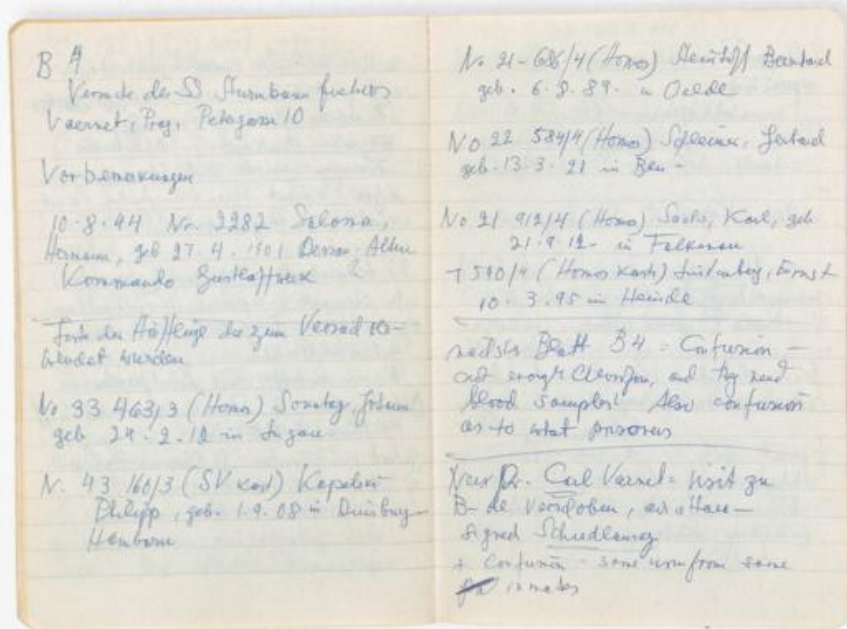 B 4
Versuche des SS Sturmbann fuehrers
Vaernet, Prag, Petagom 10
Vorbemerkungen
10.8.44 Nr. 2282
Hermann, geb 27.4.1901 Dessau-Alten
Kommando Gustloffwerk
Liste der Häftlinge die zum Versuch
wendet wurden
No 33 463/3 (Homo) Sonntag,
geb 24.2.12 in
N. 43 160/3 (SV kast) Kapelski
Philipp, geb. 1.9.08 in Duisburg-
Hamborn
No 21-686/4 (Homo) Steinhoff Bernhard
geb. 6.8.89. in Oelde
No 22 584/4 (Homo) Schleicher, Gerhard
geb. 13.3.21 in
No 21 912/4 (Homo) Sachs, Karl, geb
21.9.12 in Falkenau
+ 510/4 (Homo kast) Lindenberg, Ernst
10.3.95 in Heinde
nächstes Blatt B4 = Confusion -
not enough and they need
blood samples! Also confusion
as to what prisoners
Dr. Carl Varnet = visit zu
B-de verschoben, aus
signed Schiedlausky
+ Confusion - some from some
inmates